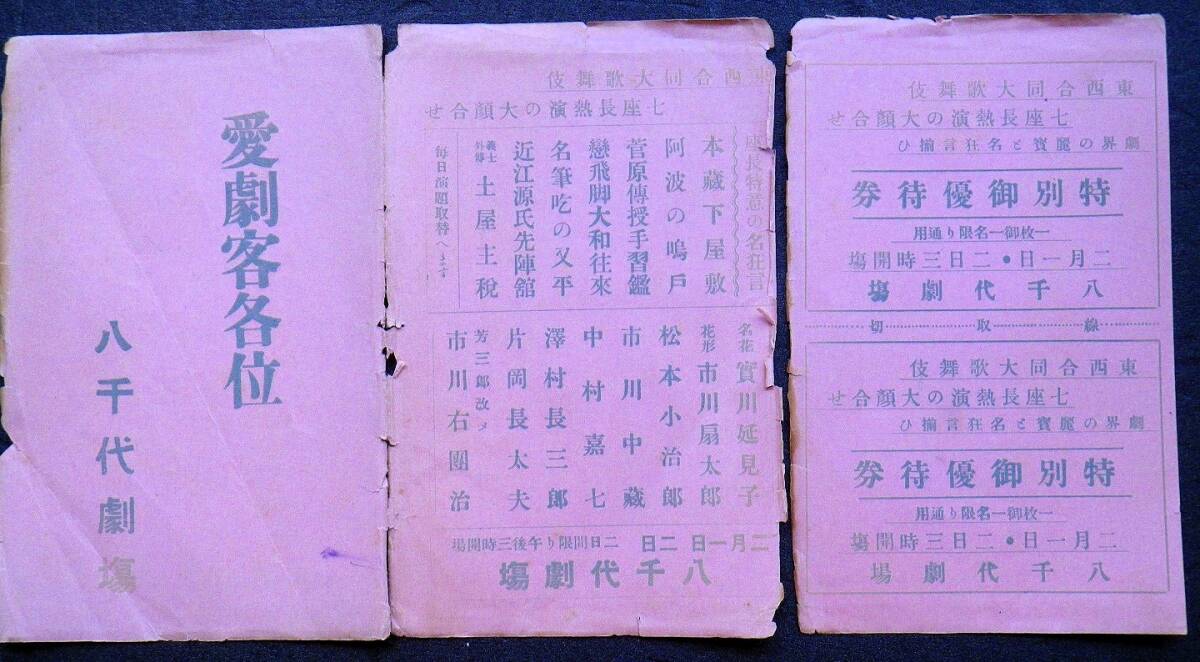 愛劇客各位
八千代劇塲
東西合同大歌舞伎
七座長熱演の大顔合せ
座長特意の名狂言
本蔵下屋敷
阿波の鳴戸
菅原傳授手習鑑
戀飛脚大和往來
名筆吃の又平
近江源氏先陣舘
義士外傳 土屋主税
毎日演題取替へます
名花 實川延見子
花形 市川扇太郎
松本小治郎
市川中蔵
中村嘉七
澤村長三郎
片岡長太夫
芳三郎改メ
市川右團治
二月一日 二日 二日間限り午後三時開場
八千代劇塲
東西合同大歌舞伎
七座長熱演の大顔合せ
劇界の麗寳と名狂言揃ひ
特別御優待券
一枚御一名限り通用
二月一日・二日三時開塲
八千代劇塲
切取線
東西合同大歌舞伎
七座長熱演の大顔合せ
劇界の麗寳と名狂言揃ひ
特別御優待券
一枚御一名限り通用
二月一日・二日三時開塲
八千代劇場